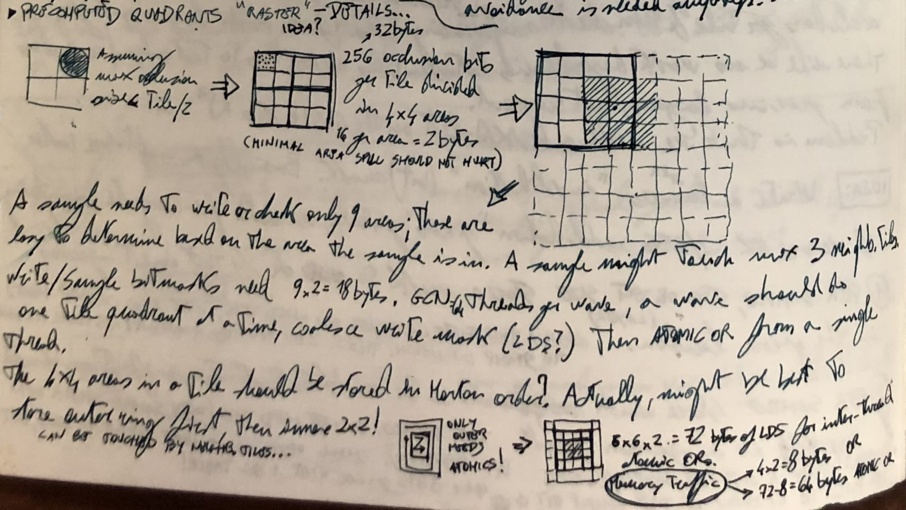 avoidance is needed anyways.
▸ PRECOMPUTED QUADRANTS "RASTER" - DETAILS...
IDEA?
Assuming
max occlusion
size < Tile/2
⇒
32 bytes
256 occlusion bits
per Tile divided
in 4x4 areas
16 per area = 2 bytes
(MINIMAL AREA SPILL SHOULD NOT HURT)
⇒
A sample needs To write or check only 9 areas; These are
easy To determine based on The area The sample is in. A sample might Touch max 3 neighb. Tiles
write/sample bitmasks need 9x2=18bytes. GCN 64 Threads per wave, a wave should do
one Tile quadrant at a Time, coalesce write mask (LDS?) Then ATOMIC OR from a single
Thread.
The 4x4 areas in a Tile should be stored in Morton order? Actually, might be best To
store outer ring first Then inner 2x2!
CAN BE TOUCHED BY TILES...
ONLY
OUTER
NEEDS
ATOMICS!
⇒
6x6x2 = 72 bytes of LDS for inter-Thread
atomic ORs.
Memory Traffic
4x2=8 bytes OR
72-8=64 bytes ATOMIC OR